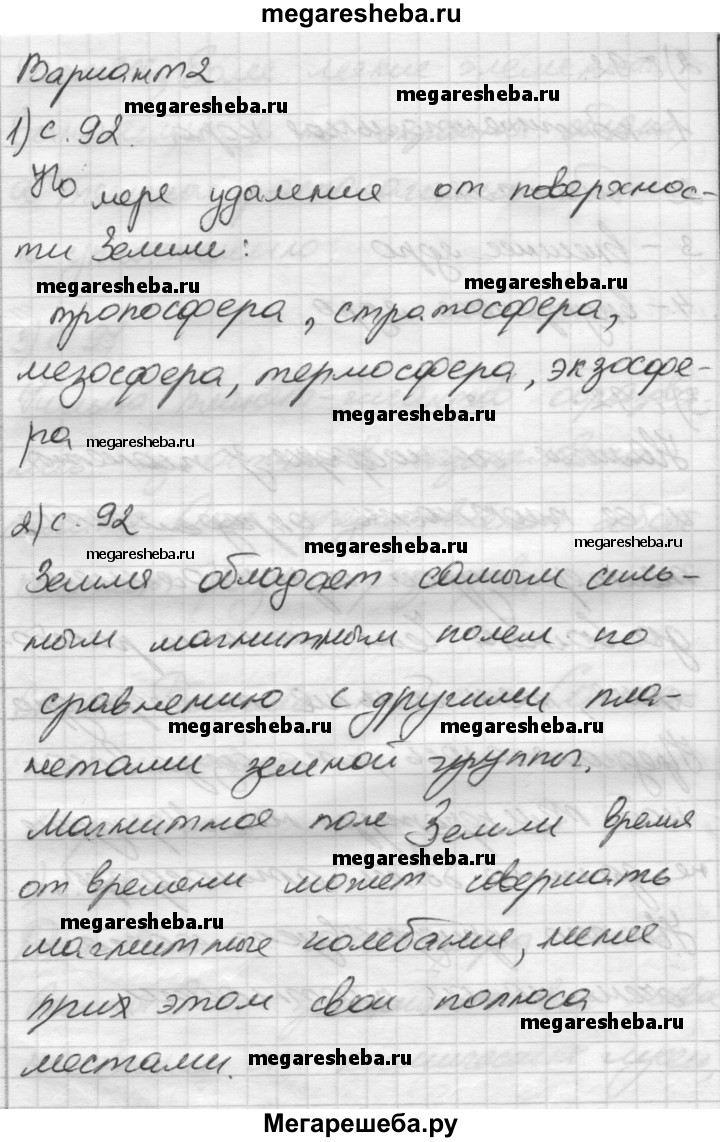 megaresheba.ru
Вариант 2
megaresheba.ru megaresheba.ru
1) с. 92.
По мере удаления от поверхнос-
ти Земли:
megaresheba.ru megaresheba.ru
тропосфера, стратосфера,
мезосфера, термосфера, экзосфе-
megaresheba.ru
ра megaresheba.ru
2) с. 92
megaresheba.ru megaresheba.ru megaresheba.ru
Земля обладает самым силь-
ным магнитным полем по
сравнению с другими пла-
megaresheba.ru megaresheba.ru
нетами земной группы.
Магнитное поле Земли время
megaresheba.ru
от времени может совершать
megaresheba.ru
магнитные колебания, меняе
прия этом свои полюса
megaresheba.ru
местами. megaresheba.ru
Мегарешеба.ру